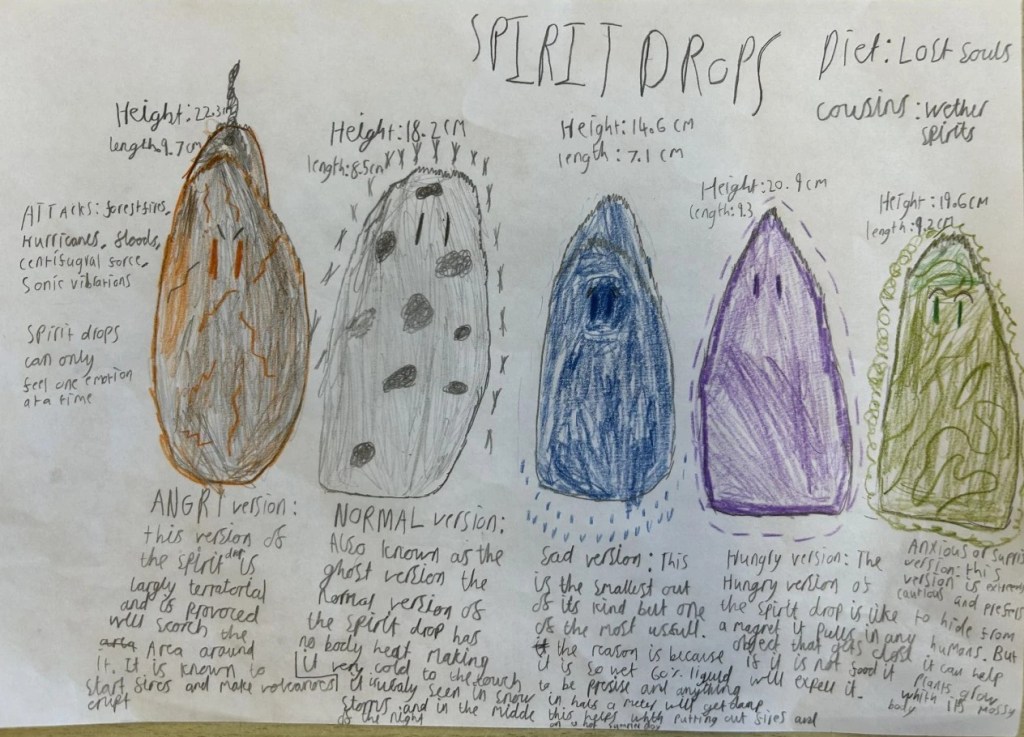 SPIRIT DROPS
Diet: Lost souls
cousins: wether
spirits
Height: 22.3cm
length: 9.7cm
Height: 18.2cm
length: 8.5cm
Height: 14.6cm
length: 7.1cm
Height: 20.9cm
length: 9.3
Height: 19.6cm
length: 9.2cm
ATTacks: forestfires,
Hurricanes, floods,
centrifugral force,
Sonic vibrations
Spirit drops
can only
feel one emotion
at a time
ANGRY version:
this version of
the spirit drop is
largly terratorial
and is provoced
will scorch the
area Area around
it. It is known to
start fires and make volcanoes
erupt
NORMAL version:
Also known as the
ghost version the
normal version of
the spirit drop has
no body heat making
it very cold to the touch
it usualy seen in snow
storms and in the middle
of the night
Sad version: This
is the smallest out
of its kind but one
of the most usfull.
the reason is because
it is so wet 60% liquid
to be precise and anything
in half a meter will get damp
this helps whth putting out fires and
on a hot summer day
Hungry version: The
Hungry version of
the spirit drop is like
a magnet it pulls in any
object that gets close
if it is not food it
will expell it.
Anxious or
version: this
version is extremely
cautious and prefers
to hide from
humans. But
it can help
plants grow
whith its mossy
body